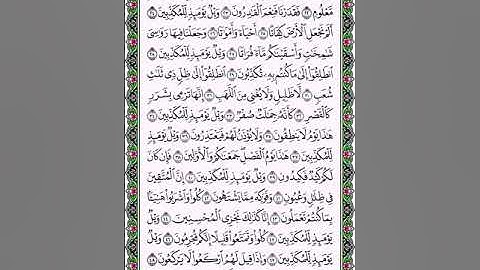 مَّعْلُومٍ ۝٢٢ فَقَدَرْنَا فَنِعْمَ الْقَادِرُونَ ۝٢٣ وَيْلٌ يَوْمَئِذٍ لِّلْمُكَذِّبِينَ ۝٢٤
أَلَمْ نَجْعَلِ الْأَرْضَ كِفَاتًا ۝٢٥ أَحْيَاءً وَأَمْوَاتًا ۝٢٦ وَجَعَلْنَا فِيهَا رَوَاسِيَ
شَامِخَاتٍ وَأَسْقَيْنَاكُم مَّاءً فُرَاتًا ۝٢٧ وَيْلٌ يَوْمَئِذٍ لِّلْمُكَذِّبِينَ ۝٢٨
انطَلِقُوا إِلَىٰ مَا كُنتُم بِهِ تُكَذِّبُونَ ۝٢٩ انطَلِقُوا إِلَىٰ ظِلٍّ ذِي ثَلَاثِ
شُعَبٍ ۝٣٠ لَّا ظَلِيلٍ وَلَا يُغْنِي مِنَ اللَّهَبِ ۝٣١ إِنَّهَا تَرْمِي بِشَرَرٍ
كَالْقَصْرِ ۝٣٢ كَأَنَّهُ جِمَالَتٌ صُفْرٌ ۝٣٣ وَيْلٌ يَوْمَئِذٍ لِّلْمُكَذِّبِينَ ۝٣٤
هَٰذَا يَوْمُ لَا يَنطِقُونَ ۝٣٥ وَلَا يُؤْذَنُ لَهُمْ فَيَعْتَذِرُونَ ۝٣٦ وَيْلٌ يَوْمَئِذٍ
لِّلْمُكَذِّبِينَ ۝٣٧ هَٰذَا يَوْمُ الْفَصْلِ جَمَعْنَاكُمْ وَالْأَوَّلِينَ ۝٣٨ فَإِن كَانَ
لَكُمْ كَيْدٌ فَكِيدُونِ ۝٣٩ وَيْلٌ يَوْمَئِذٍ لِّلْمُكَذِّبِينَ ۝٤٠ إِنَّ الْمُتَّقِينَ
فِي ظِلَالٍ وَعُيُونٍ ۝٤١ وَفَوَاكِهَ مِمَّا يَشْتَهُونَ ۝٤٢ كُلُوا وَاشْرَبُوا هَنِيئًا
بِمَا كُنتُمْ تَعْمَلُونَ ۝٤٣ إِنَّا كَذَٰلِكَ نَجْزِي الْمُحْسِنِينَ ۝٤٤ وَيْلٌ
يَوْمَئِذٍ لِّلْمُكَذِّبِينَ ۝٤٥ كُلُوا وَتَمَتَّعُوا قَلِيلًا إِنَّكُم مُّجْرِمُونَ ۝٤٦ وَيْلٌ
يَوْمَئِذٍ لِّلْمُكَذِّبِينَ ۝٤٧ وَإِذَا قِيلَ لَهُمُ ارْكَعُوا لَا يَرْكَعُونَ ۝٤٨